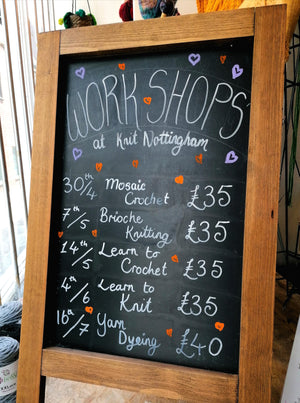 WORKSHOPS
at Knit Nottingham
30th/4 Mosaic Crochet £35
7th/5 Brioche Knitting £35
14th/5 Learn to Crochet £35
4th/6 Learn to Knit £35
16th/7 Yarn Dyeing £40